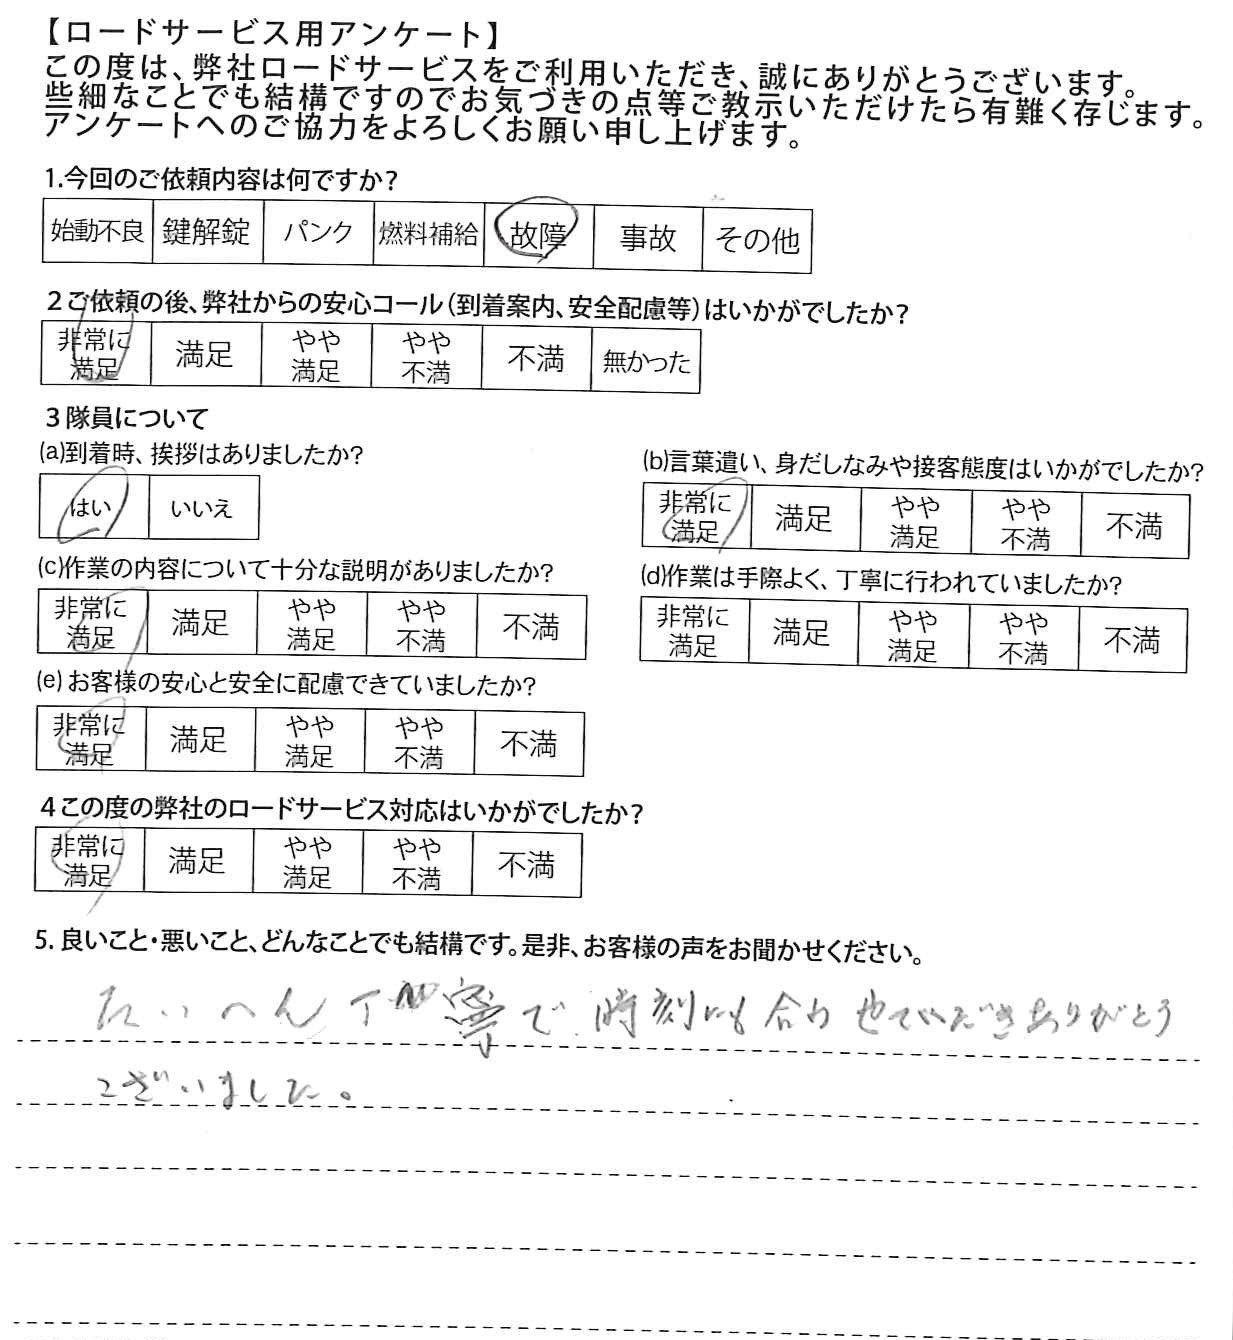 【ロードサービス用アンケート】
この度は、弊社ロードサービスをご利用いただき、誠にありがとうございます。
些細なことでも結構ですのでお気づきの点等ご教示いただけたら有難く存じます。
アンケートへのご協力をよろしくお願い申し上げます。
1.今回のご依頼内容は何ですか?
始動不良 鍵解錠 パンク 燃料補給 故障 事故 その他
2ご依頼の後、弊社からの安心コール(到着案内、安全配慮等)はいかがでしたか?
非常に満足 満足 やや満足 やや不満 不満 無かった
3隊員について
(a)到着時、挨拶はありましたか?
はい いいえ
(b)言葉遣い、身だしなみや接客態度はいかがでしたか?
非常に満足 満足 やや満足 やや不満 不満
(c)作業の内容について十分な説明がありましたか?
非常に満足 満足 やや満足 やや不満 不満
(d)作業は手際よく、丁寧に行われていましたか?
非常に満足 満足 やや満足 やや不満 不満
(e)お客様の安心と安全に配慮できていましたか?
非常に満足 満足 やや満足 やや不満 不満
4この度の弊社のロードサービス対応はいかがでしたか?
非常に満足 満足 やや満足 やや不満 不満
5.良いこと・悪いこと、どんなことでも結構です。是非、お客様の声をお聞かせください。
たいへん丁寧で 時刻にも合わせていただきありがとう
ございました。